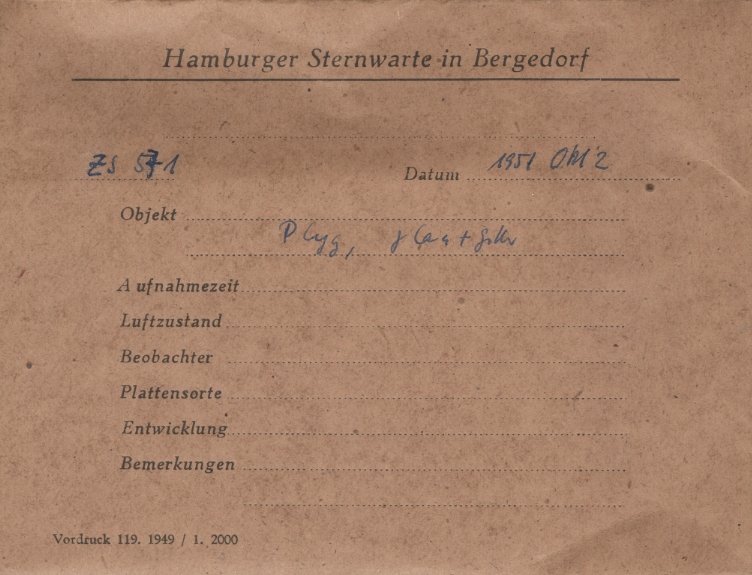 Hamburger Sternwarte in Bergedorf
ZS 571
Datum 1951 Okt 2
Objekt
P Cyg, γ Cas + Gitter
Aufnahmezeit
Luftzustand
Beobachter
Plattensorte
Entwicklung
Bemerkungen
Vordruck 119. 1949 / 1. 2000